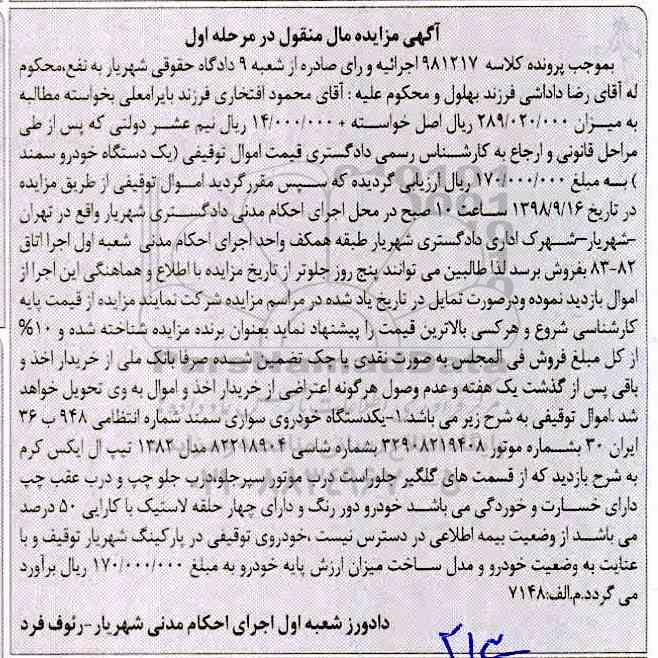 آگهی مزایده مال منقول در مرحله اول
بموجب پرونده کلاسه ۹۸۱۲۱۷ اجرائیه و رای صادره از شعبه ۹ دادگاه حقوقی شهریار به نفع،محکوم
له آقای رضا داداشی فرزند بهلول و محکوم علیه : آقای محمود افتخاری فرزند بایرامعلی بخواسته مطالبه
به میزان ۲۸۹/۰۲۰/۰۰۰ ریال اصل خواسته + ۱۴/۰۰۰/۰۰۰ ریال نیم عشر دولتی که پس از طی
مراحل قانونی و ارجاع به کارشناس رسمی دادگستری قیمت اموال توقیفی (یک دستگاه خودرو سمند
) به مبلغ ۱۷۰/۰۰۰/۰۰۰ ریال ارزیابی گردیده که سپس مقرر گردید اموال توقیفی از طریق مزایده
در تاریخ ۱۳۹۸/۹/۱۶ ساعت ۱۰ صبح در محل اجرای احکام مدنی دادگستری شهریار واقع در تهران
-شهریار-شهرک اداری دادگستری شهریار طبقه همکف واحد اجرای احکام مدنی شعبه اول اجرا اتاق
۸۲-۸۳ بفروش برسد لذا طالبین می توانند پنج روز جلوتر از تاریخ مزایده با اطلاع و هماهنگی این اجرا از
اموال بازدید نموده ودرصورت تمایل در تاریخ یاد شده در مراسم مزایده شرکت نمایند مزایده از قیمت پایه
کارشناسی شروع و هرکسی بالاترین قیمت را پیشنهاد نماید بعنوان برنده مزایده شناخته شده و ۱۰%
از کل مبلغ فروش فی المجلس به صورت نقدی یا چک تضمین شده صرفا بانک ملی از خریدار اخذ و
باقی پس از گذشت یک هفته و عدم وصول هرگونه اعتراضی از خریدار اخذ و اموال به وی تحویل خواهد
شد .اموال توقیفی به شرح زیر می باشد:۱-یکدستگاه خودروی سواری سمند شماره انتظامی ۹۴۸ ب ۳۶
ایران ۳۰ بشماره موتور ۳۲۹۰۸۲۱۹۴۰۸ بشماره شاسی ۸۲۲۱۸۹۰۴ مدل ۱۳۸۲ تیپ ال ایکس کرم
به شرح بازدید که از قسمت های گلگیر جلوراست درب موتور سپرجلو،درب جلو چپ و درب عقب چپ
دارای خسارت و خوردگی می باشد خودرو دور رنگ و دارای چهار حلقه لاستیک با کارایی ۵۰ درصد
می باشد از وضعیت بیمه اطلاعی در دسترس نیست ،خودروی توقیفی در پارکینگ شهریار توقیف و با
عنایت به وضعیت خودرو و مدل ساخت میزان ارزش پایه خودرو به مبلغ ۱۷۰/۰۰۰/۰۰۰ ریال برآورد
می گردد.م.الف:۷۱۴۸
دادورز شعبه اول اجرای احکام مدنی شهریار-رئوف فرد